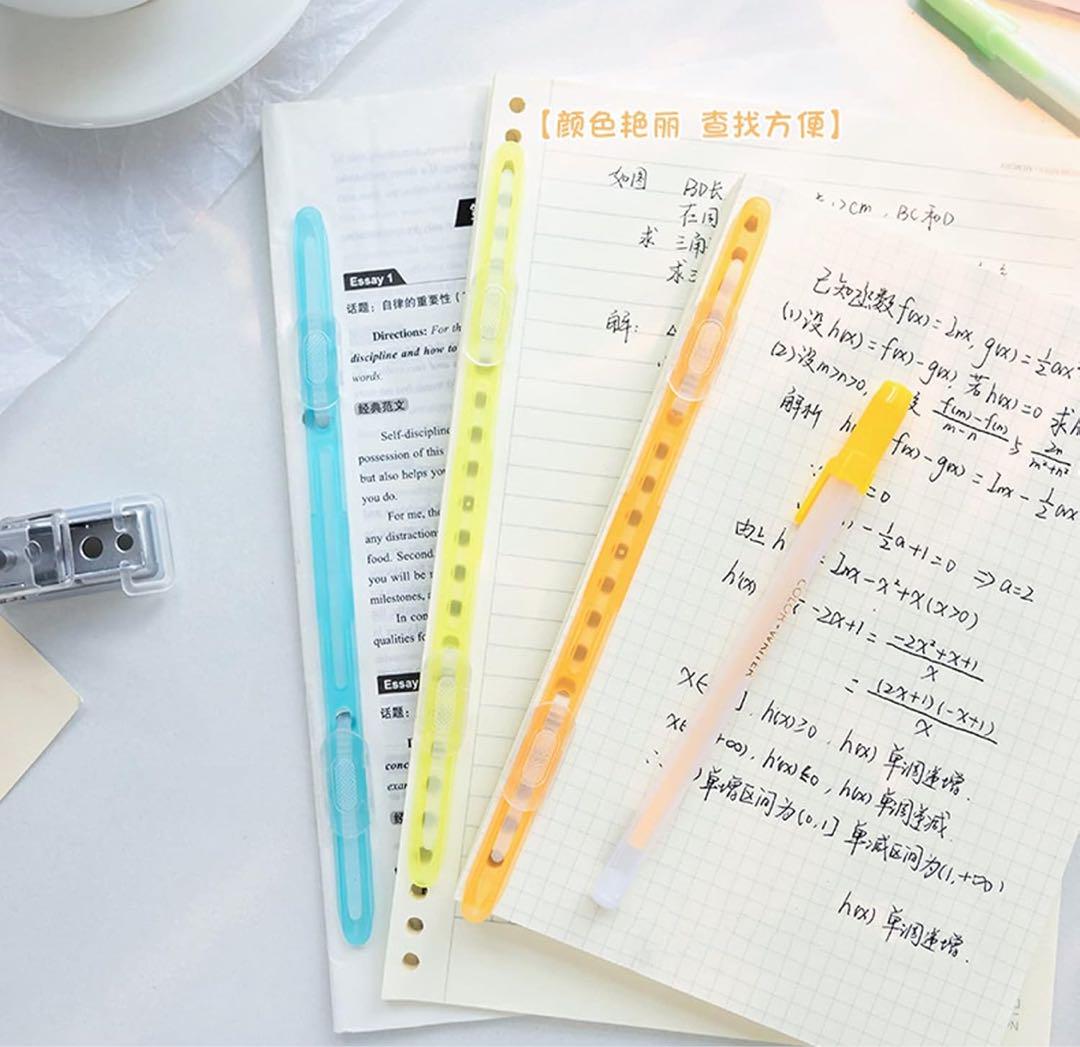 【颜色艳丽 查找方便】
Essay 1
话题：自律的重要性（
Directions: For th
discipline and how to
words.
经典范文
Self-discipline
possession of this
but also helps you
you do.
For me, the
any distraction
food. Second
you will be
milestones,
In con
qualities fo
Essay
话题：
conc
exar
如图 BD长
在同
求 三角
求三
解：
cm，BC和D
已知函数f(x)=lnx, g(x)=½ax²
(1)设h(x)=f(x)-g(x)，若h(x)=0 求
(2)设m>n>0， (f(m)-f(n))/(m-n) 与 2n/(m²+n²)
解析 f(x)-g(x)=lnx-½ax
=0
由上 h -½a+1=0 ⇒a=2
h'(x) =lnx-x²+x(x>0)
-2x+1=(-2x²+x+1)/x
=(2x+1)(-x+1)/x
x∈ ], h'(x)≥0, h(x)单调递增.
x∈ +∞), h'(x)≤0, h(x)单调递减
∴ 单增区间为(0,1] 单减区间为(1,+∞)
h(x)单调递增.
COLOR·WRITER